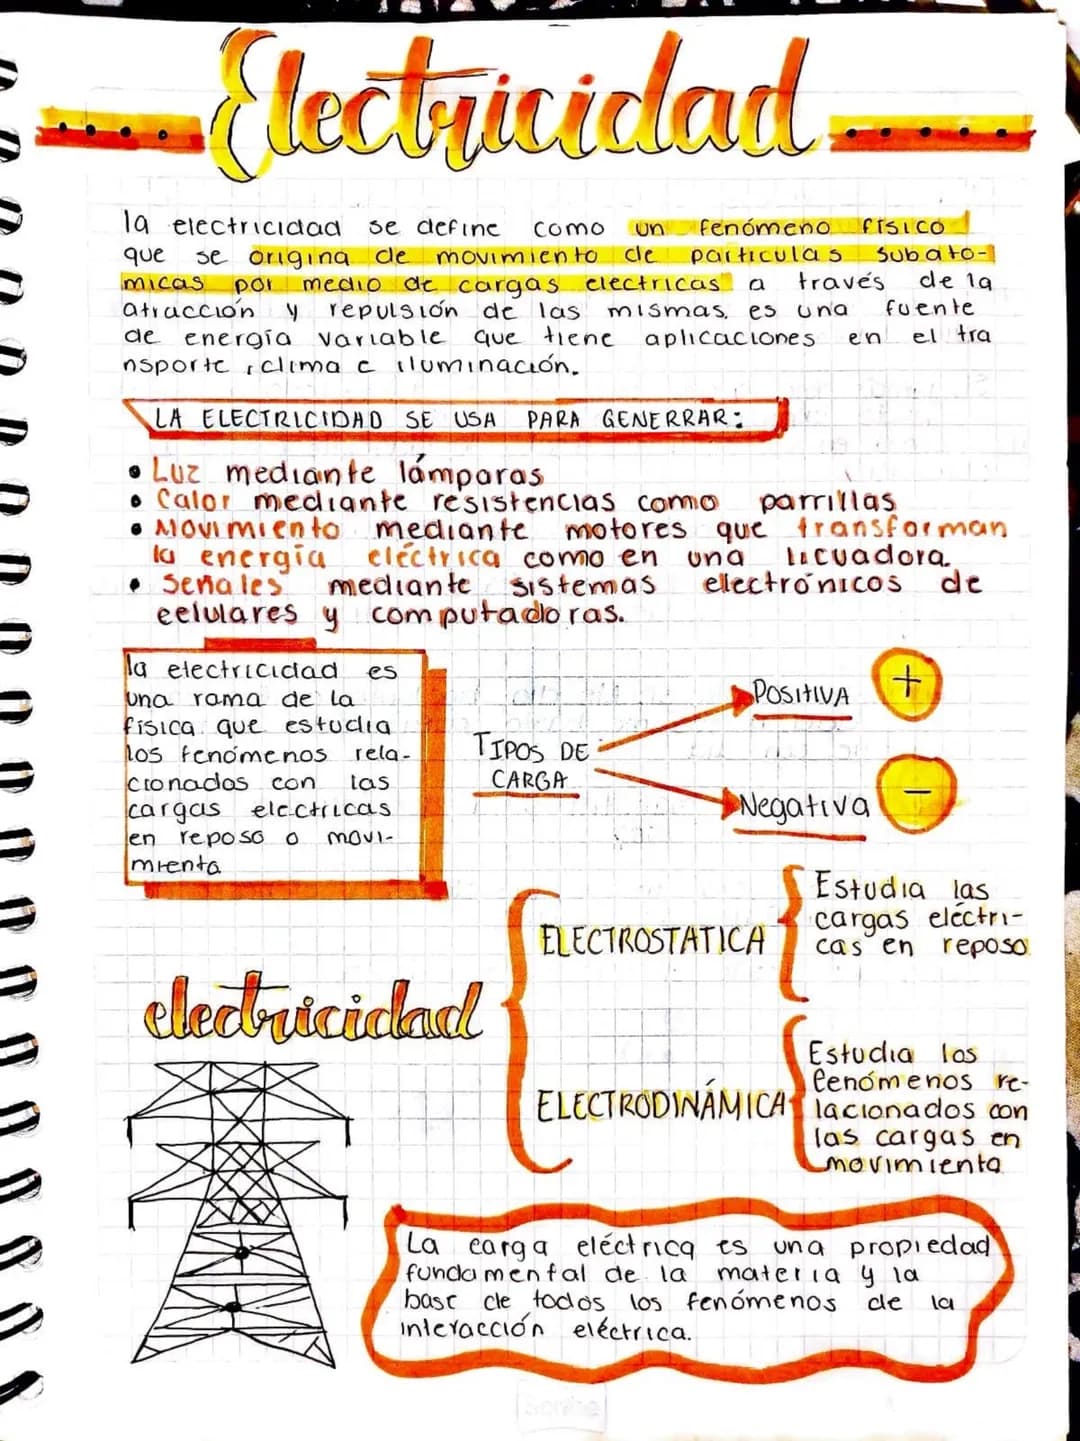 Electricidad
la electricidad se define como un fenómeno físico
que se origina de movimiento de particulas subato-
micas por medio de cargas electricas a través de la
atracción y repulsión de las mismas, es una fuente
de energía variable que tiene aplicaciones en el tra
nsporte, clima e iluminación.
LA ELECTRICIDAD SE USA PARA GENERRAR:
• Luz mediante lámparas
• Calor mediante resistencias como parrillas
• Movimiento mediante motores que transforman
la energía eléctrica como en una licuadora.
• Señales mediante sistemas electrónicos de
celulares y computadoras.
la electricidad es
una rama de la
física que estudia
los fenómenos rela-
cionados con las
cargas electricas
en reposo o movi-
miento
TIPOS DE
CARGA
POSITIVA +
Negativa -
electricidad
ELECTROSTATICA
Estudia las
cargas eléctri-
cas en reposo
ELECTRODINÁMICA
Estudia los
fenómenos re-
lacionados con
las cargas en
movimiento
La carga eléctrica es una propiedad
fundamental de la materia y la
base de todos los fenómenos de la
interacción eléctrica.
Scribe